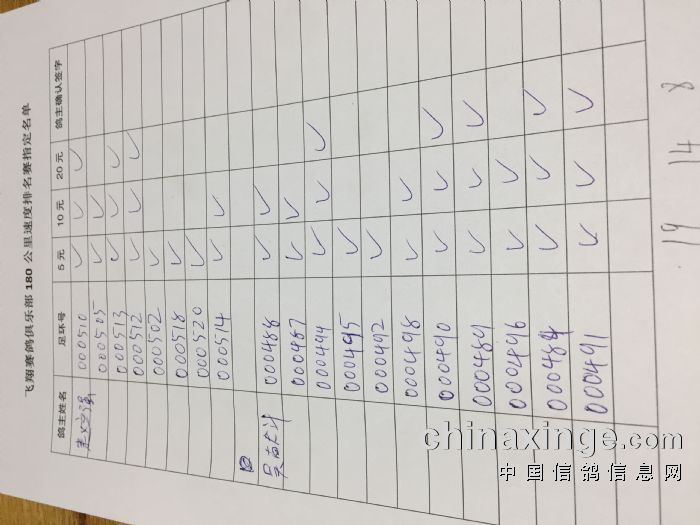 飞翔赛鸽俱乐部 180 公里速度排名赛指定名单
鸽主姓名 足环号 5元 10元 20元 鸽主确认签字
000510 ✓ ✓ ✓
000505 ✓ ✓
000513 ✓ ✓ ✓
000512 ✓ ✓ ✓
000502 ✓
000518 ✓
000520 ✓
000514 ✓ ✓
000488 ✓ ✓
000487 ✓ ✓
000494 ✓ ✓ ✓
000495 ✓
000492 ✓
000498 ✓ ✓
000490 ✓ ✓ ✓
000489 ✓ ✓ ✓
000496 ✓ ✓
000484 ✓ ✓ ✓
000491 ✓ ✓ ✓
19 14 8
chinaxinge.com
中国信鸽信息网